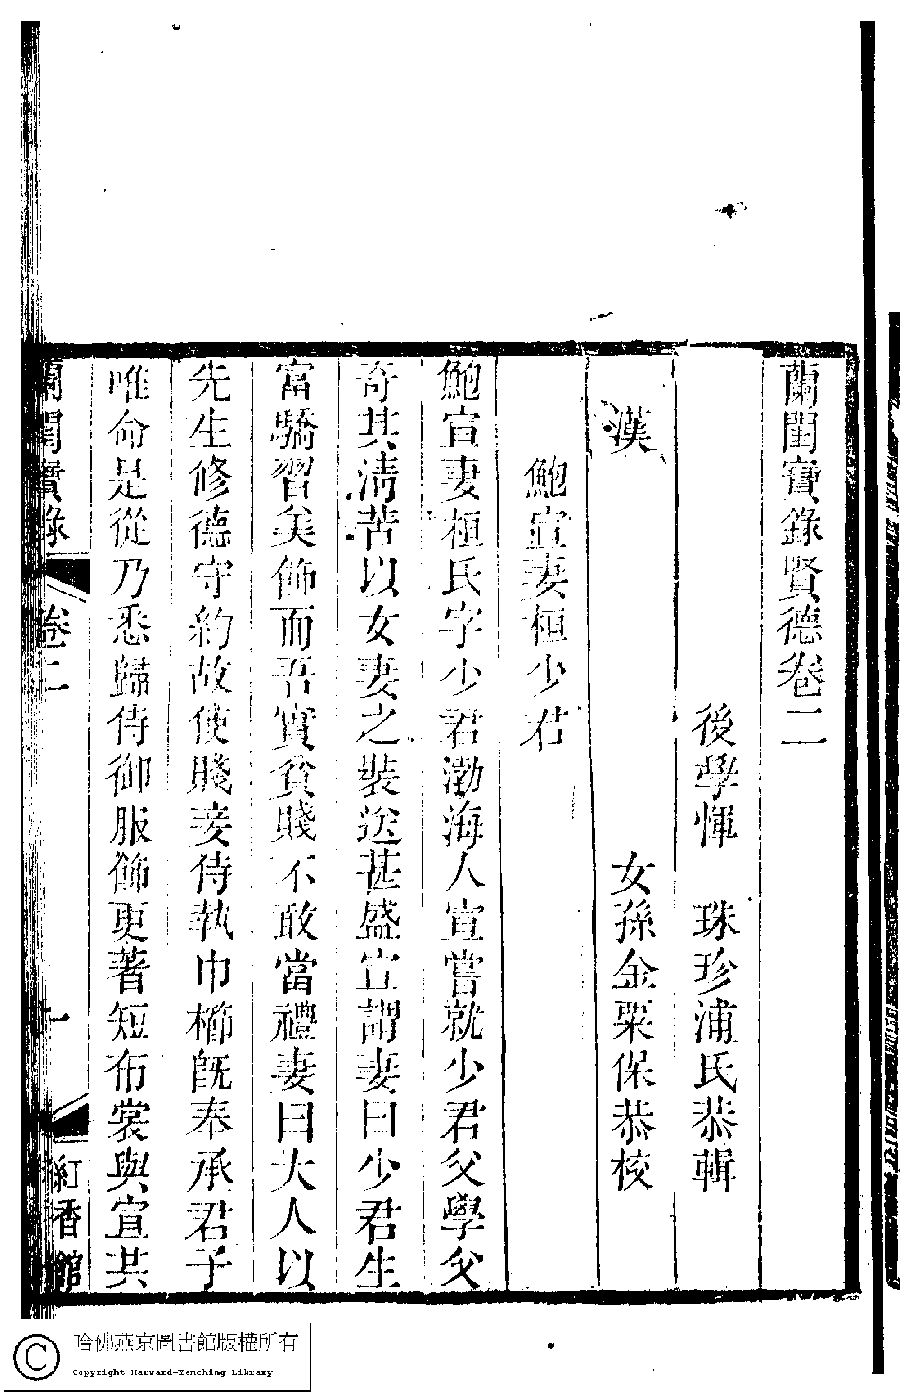 蘭閨寶錄賢德卷二
後學惲　珠珍浦氏恭輯
女孫金粟保恭校
漢
鮑宣妻桓少君
鮑宣妻桓氏字少君渤海人宣嘗就少君父學父
奇其淸苦以女妻之裝送甚盛宣謂妻曰少君生
富驕習美飾而吾實貧賤不敢當禮妻曰大人以
先生修德守約故使賤妾侍執巾櫛旣奉承君子
唯命是從乃悉歸侍御服飾更著短布裳與宣共
蘭閨寶錄
卷二
一
紅香館
哈佛燕京圖書館版權所有
Copyright Harvard-Yenching Library